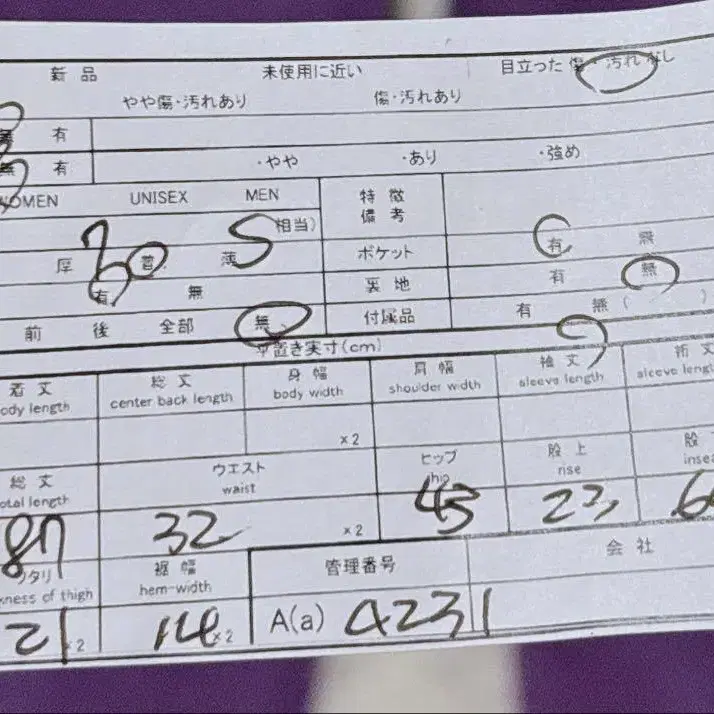 新品 未使用に近い 目立った傷・汚れなし
やや傷・汚れあり 傷・汚れあり
無 有
無 有 ・やや ・あり ・強め
WOMEN UNISEX MEN 特徴
備考
S 相当)
厚 普 薄 ポケット 有 無
有 無 裏地 有 無
前 後 全部 無 付属品 有 無 ( )
平置き実寸(cm)
着丈 総丈 身幅 肩幅 袖丈 裄丈
ody length center back length body width shoulder width sleeve length sleeve leng
×2
総丈 ウエスト ヒップ 股上 股
otal length waist hip rise inse
87 32 ×2 45 23
ワタリ 裾幅 管理番号 会社
kness of thigh hem-width
21 ×2 14 ×2 A(a) 4231